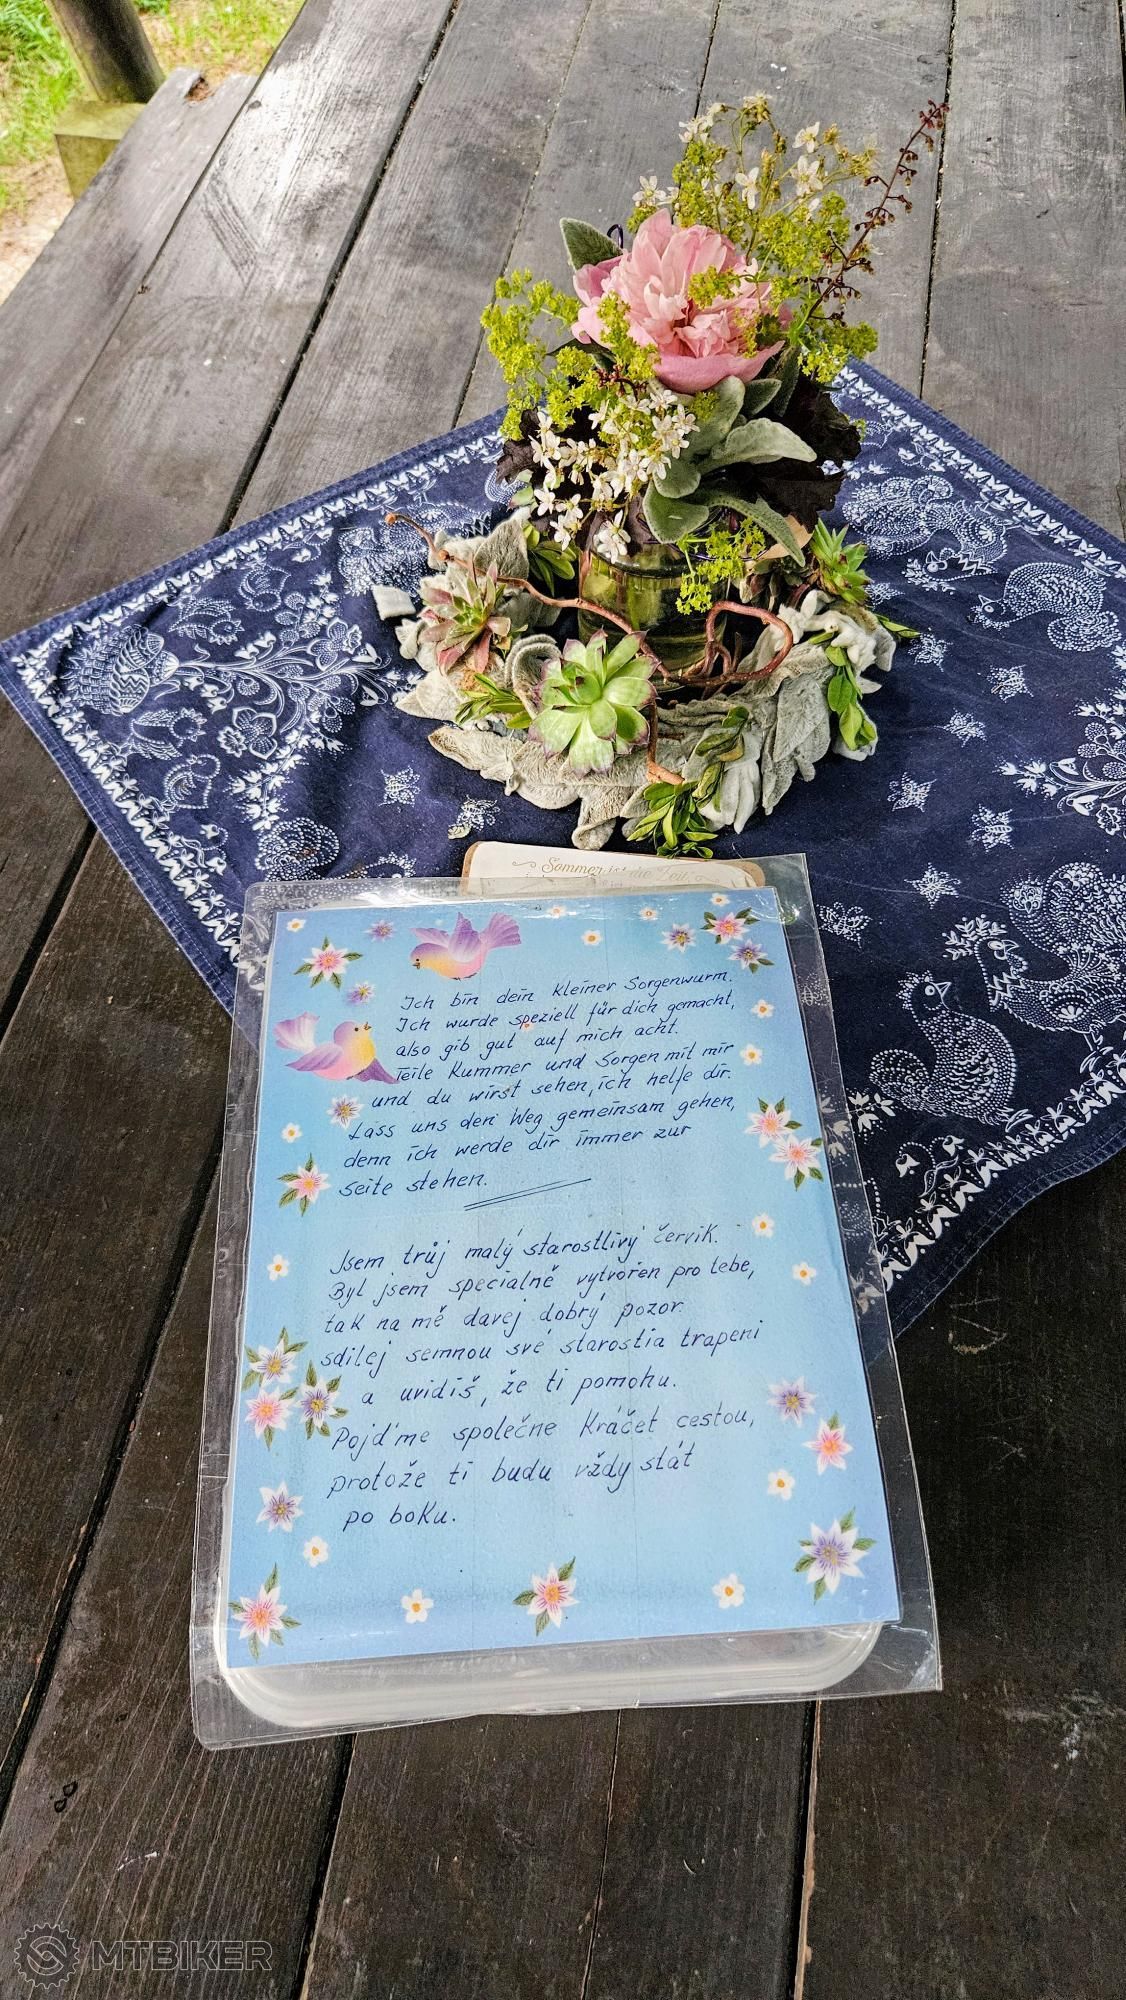 Sommer ist die Zeit,
Ich bin dein kleiner Sorgenwurm.
Ich wurde speziell für dich gemacht,
also gib gut auf mich acht.
Teile Kummer und Sorgen mit mir
und du wirst sehen, ich helfe dir.
Lass uns den Weg gemeinsam gehen,
denn ich werde dir immer zur
seite stehen.
Jsem trůj malý starostlivý červik.
Byl jsem specialně vytvořen pro tebe,
tak na mě davej dobrý pozor.
sdilej semnou své starostia trapeni
a uvidiš, že ti pomohu.
Pojďme společne kráčet cestou,
protože ti budu vždy stát
po boku.
MTBIKER